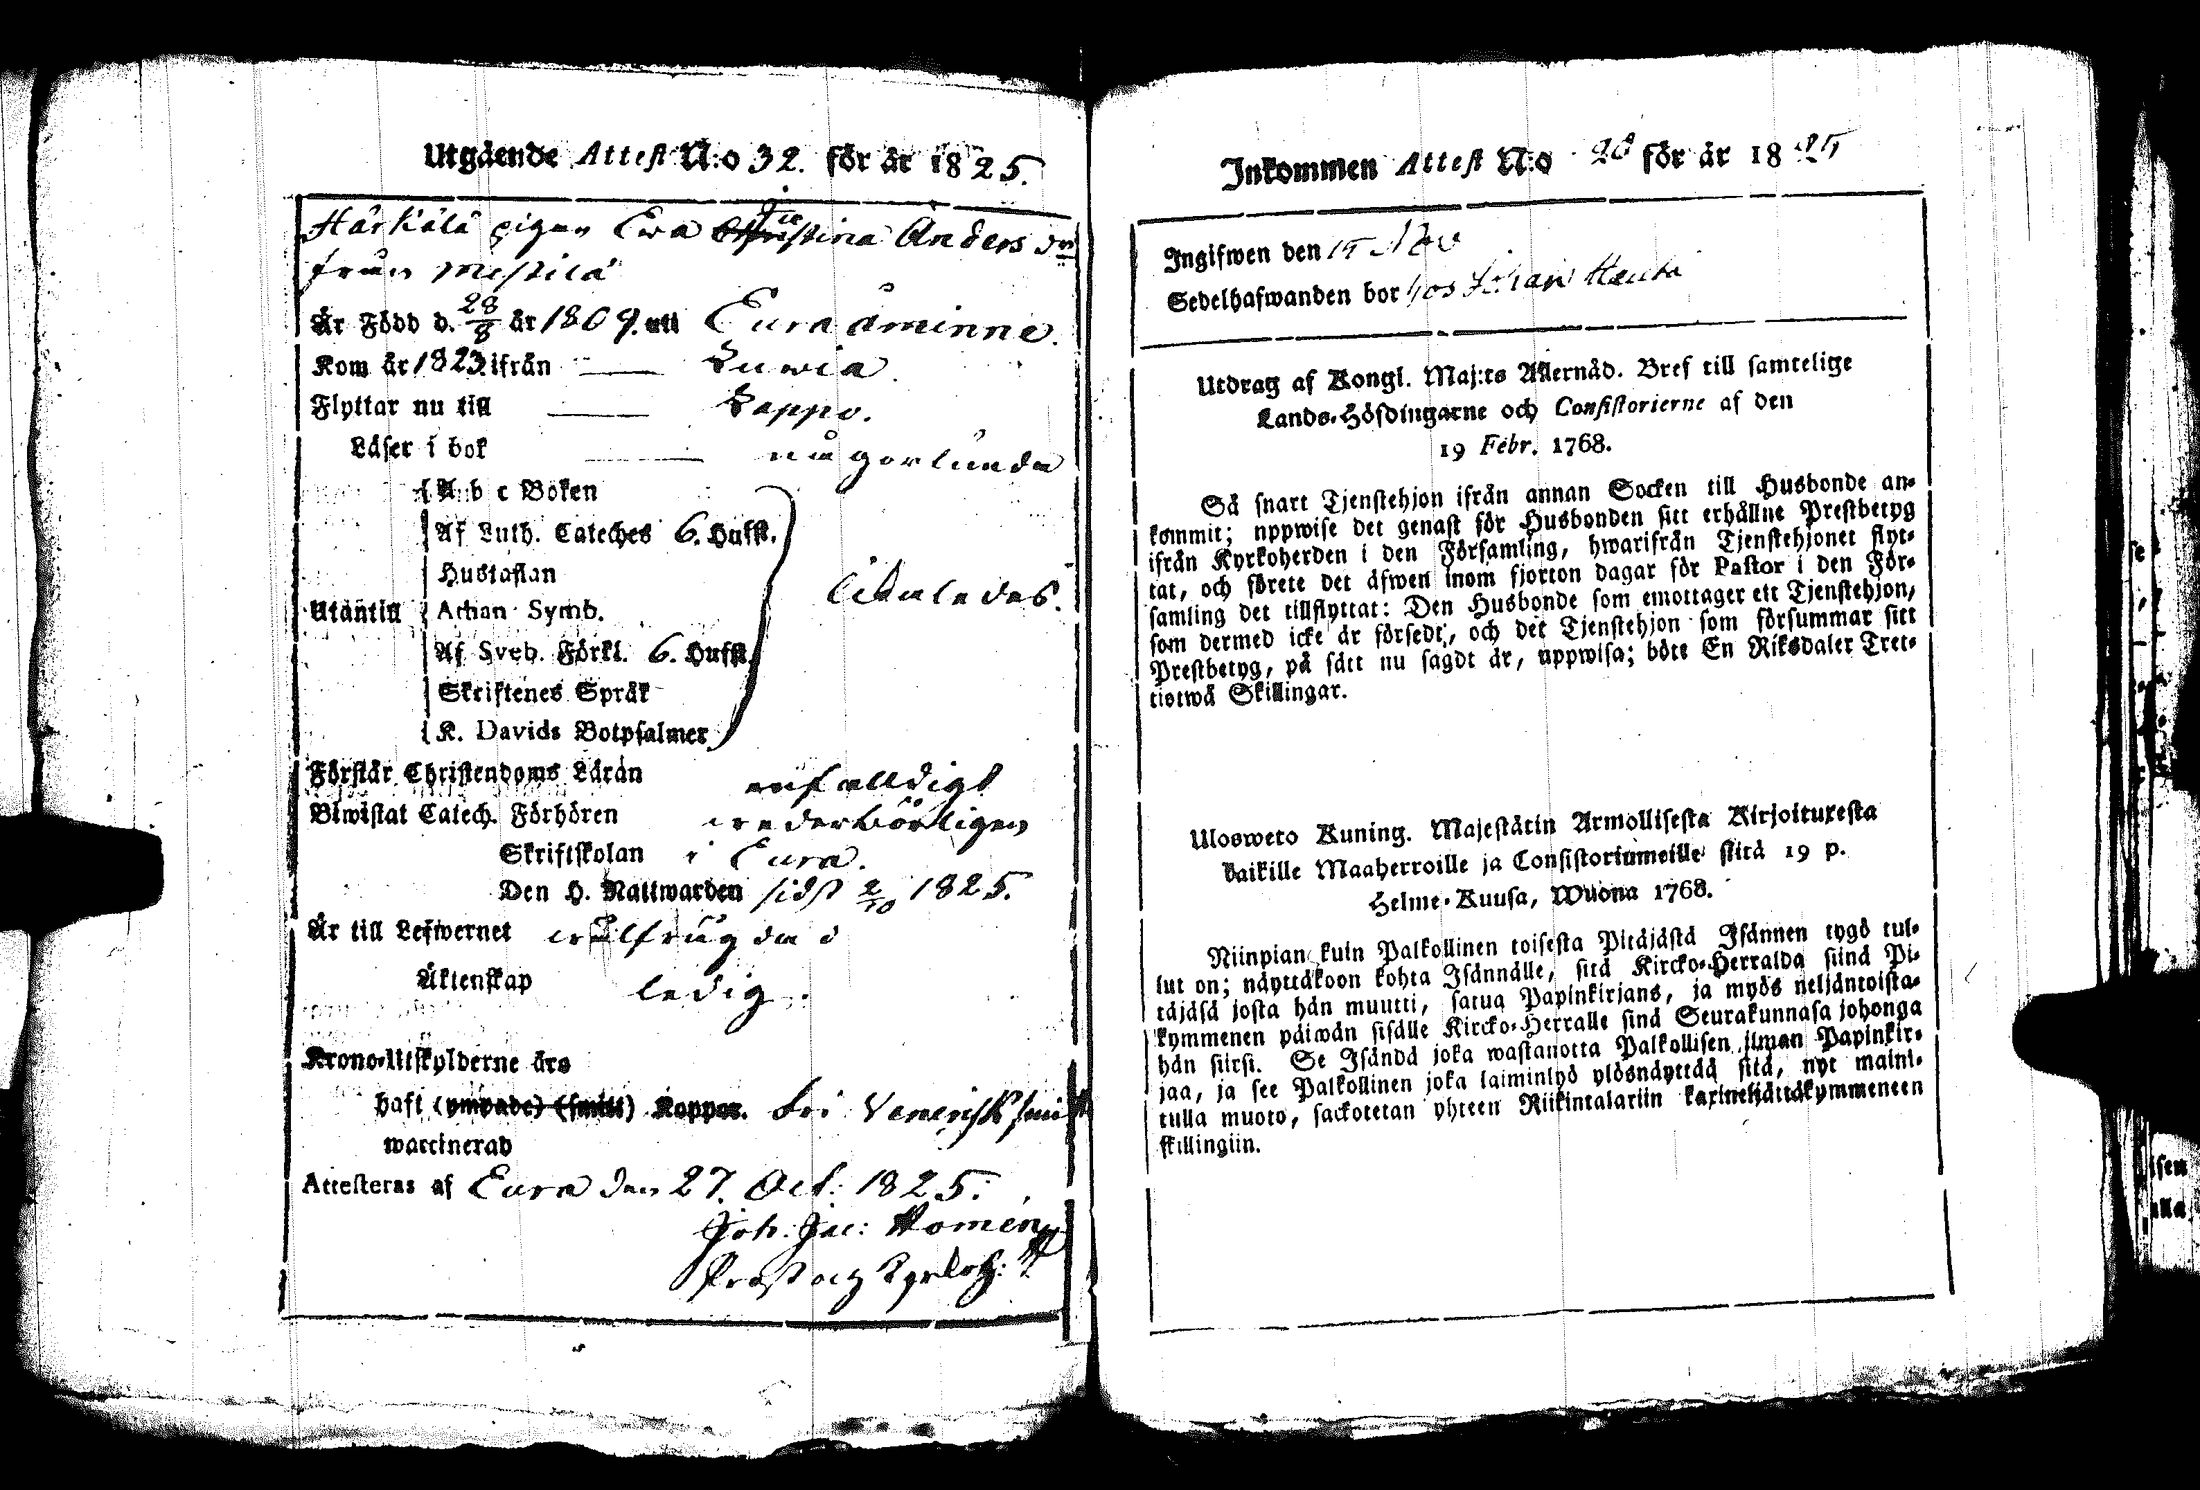 Utgående Attest N:o 32. för år 1825.
Härkälä pigan Ewa Stina Anders dr
från Mestilä
Är Född d. 28/8 år 1809. uti Eura åminne.
Kom år 1823 ifrån Luvia.
Flyttar nu till Lappo.
Läser i bok någorlunda
A b c Boken
Af Luth. Cateches 6. Hufst.
Hustaflan
Utantill Athan Symb. likaledes.
Af Sveb. Förkl. 6. Hufst.
Skriftenes Språk
K. Davids Botpsalmer
Förstår Christendoms Lärän enfalldigt
Biwistat Catech. Förhören wederbörligen
Skriftskolan i Eura.
Den H. Nattwarden sidst 2/10 1825.
Är till Lefwernet wälfrägdad
Äktenskap ledig.
Krono-Utskylderne års
haft (ympade) (smitt) Koppor. fri Venerisk smitta
waccinerad
Attesteras af Eura den 27. Oct: 1825.
Joh. Jac: Homén
Prost och Kyrkoh:
Inkommen Attest N:o 28 för år 1825
Ingifwen den 15 Nov
Sedelhafwanden bor hos Johan
Utdrag af Kongl. Maj:ts Allernåd. Bref till samtelige
Lands-Höfdingarne och Consistorierne af den
19 Febr. 1768.
Så snart Tjenstehjon ifrån annan Socken till Husbonde an-
kommit; uppwise det genast för Husbonden sitt erhållne Prestbetyg
ifrån Kyrkoherden i den Församling, hwarifrån Tjenstehjonet flyt-
tat, och förete det äfwen inom fjorton dagar för Pastor i den För-
samling det tillflyttat: Den Husbonde som emottager ett Tjenstehjon,
som dermed icke är försedt, och det Tjenstehjon som försummar sitt
Prestbetyg, på sätt nu sagdt är, uppwisa; böte En Riksdaler Tret-
tiotwå Skillingar.
Ulosweto Kuning. Majestätin Armollisesta Kirjoituxesta
kaikille Maaherroille ja Consistoriumeille siitä 19 p.
Helme-Kuusa, Wuona 1768.
Niinpian kuin Palkollinen toisesta Pitäjästä Isännen tygö tul-
lut on; näyttäkoon kohta Isännälle, sitä Kircko-Herralda siinä Pi-
täjäsä josta hän muutti, satua Papinkirjans, ja myös neljäntoista-
kymmenen päiwän sisälle Kircko-Herralle sinä Seurakunnasa johonga
hän siirsi. Se Isändä joka wastanotta Palkollisen ilman Papinkir-
jaa, ja see Palkollinen joka laiminlyö ylösnäyttää sitä, nyt maini-
tulla muoto, sackotetan yhteen Riikintalariin kaxineljättäkymmeneen
skillingiin.